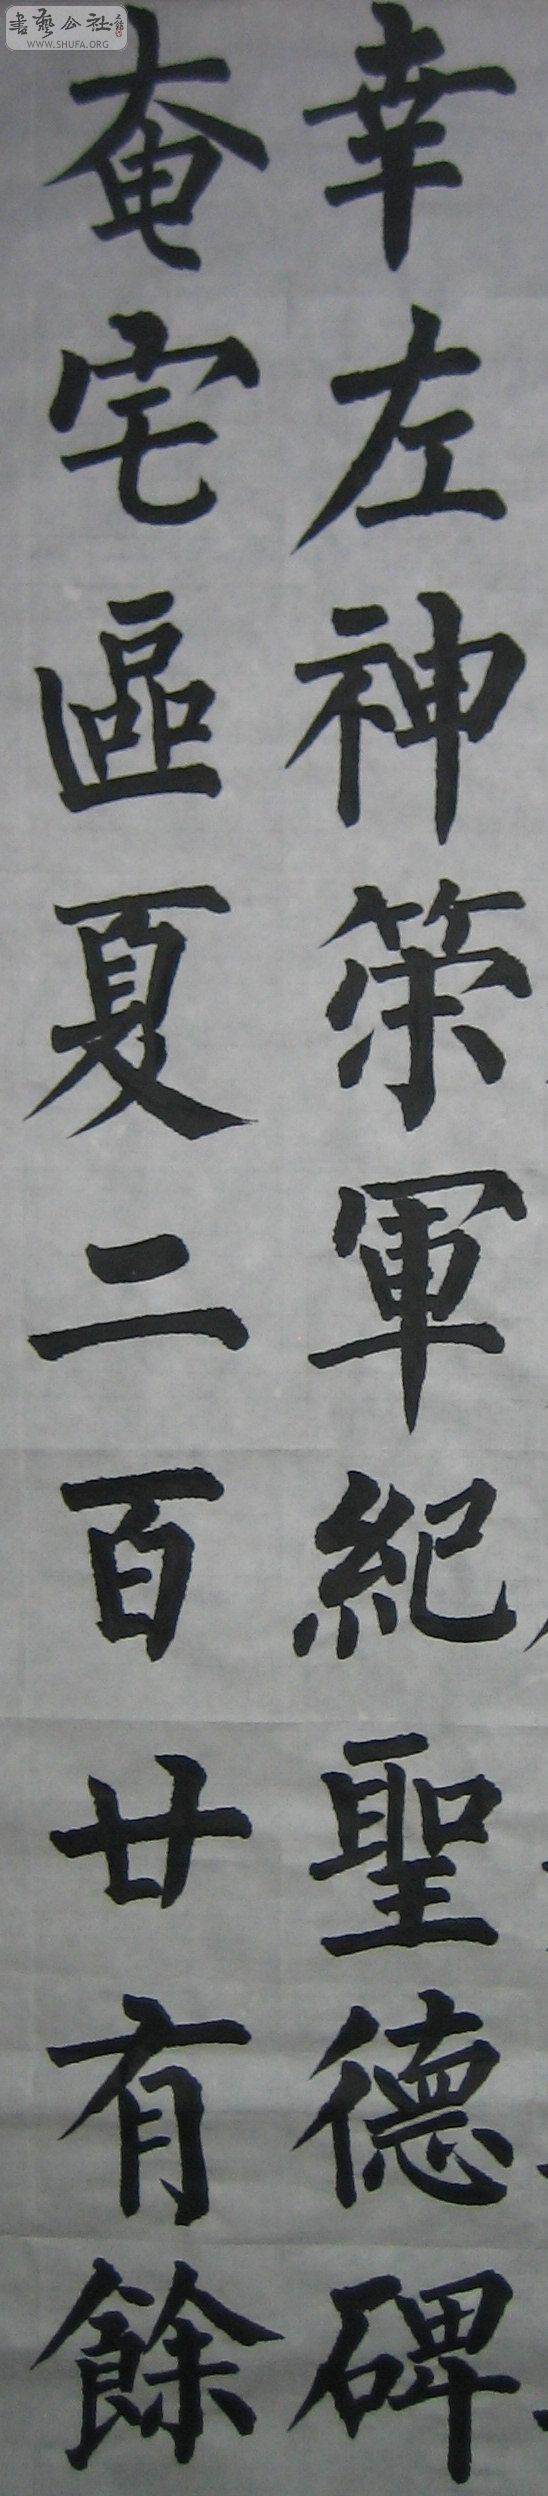 幸左神策軍紀聖德碑
奄宅區夏二百廿有餘
書藝公社
WWW.SHUFA.ORG